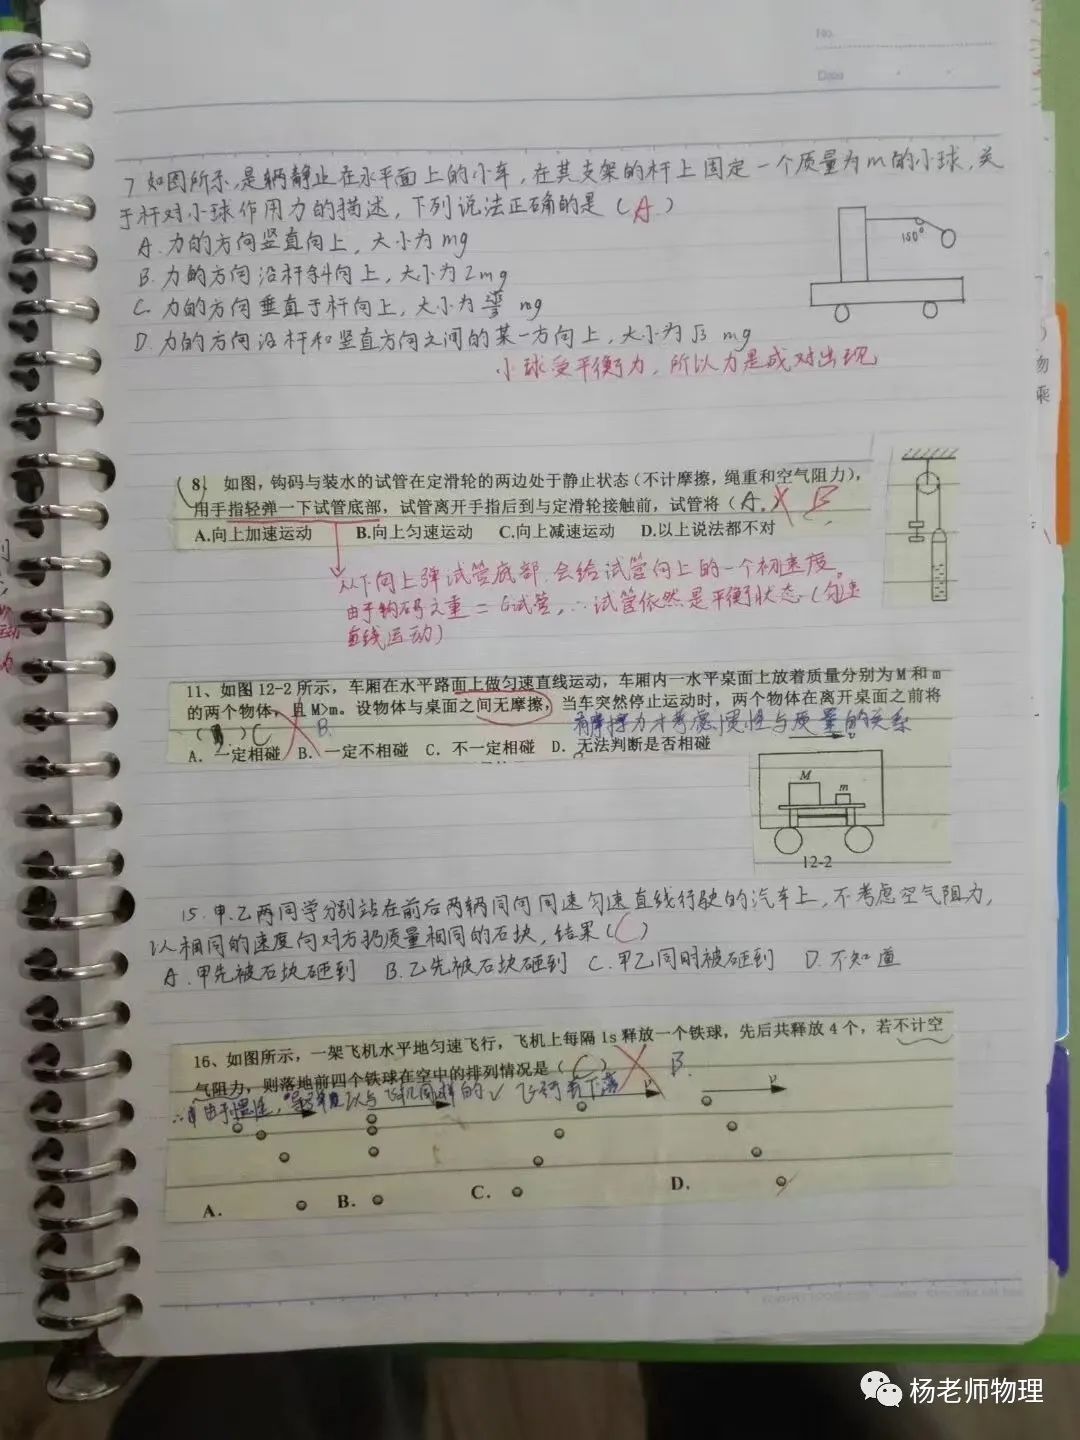 No.
Date
7 如图所示,是辆静止在水平面上的小车,在其支架的杆上固定一个质量为m的小球,关
于杆对小球作用力的描述,下列说法正确的是(A)
A.力的方向竖直向上,大小为mg
B.力的方向沿杆斜向上,大小为2mg
C.力的方向垂直于杆向上,大小为 mg
D.力的方向沿杆和竖直方向之间的某一方向上,大小为√3 mg
150°
小球受平衡力,所以力是成对出现
8. 如图,钩码与装水的试管在定滑轮的两边处于静止状态(不计摩擦,绳重和空气阻力),
用手指轻弹一下试管底部,试管离开手指后到与定滑轮接触前,试管将(A. B
A.向上加速运动 B.向上匀速运动 C.向上减速运动 D.以上说法都不对
从下向上弹试管底部,会给试管向上的一个初速度。
由于钩码之重=G试管,∴试管依然是平衡状态(匀速
直线运动)
11、如图12-2所示,车厢在水平路面上做匀速直线运动,车厢内一水平桌面上放着质量分别为M和m
的两个物体,且M>m。设物体与桌面之间无摩擦,当车突然停止运动时,两个物体在离开桌面之前将
( )C B.
有摩擦力才考虑惯性与质量的关系
A. 一定相碰 B. 一定不相碰 C. 不一定相碰 D. 无法判断是否相碰
M
m
12-2
15.甲、乙两同学分别站在前后两辆同向同速匀速直线行驶的汽车上,不考虑空气阻力,
以相同的速度向对方扔质量相同的石块,结果(C)
A.甲先被石块砸到 B.乙先被石块砸到 C.甲乙同时被砸到 D.不知道
16、如图所示,一架飞机水平地匀速飞行,飞机上每隔1s释放一个铁球,先后共释放4个,若不计空
气阻力,则落地前四个铁球在空中的排列情况是(C) B.
由于惯性, 以与飞机同样的v
A. B. C. D.
杨老师物理